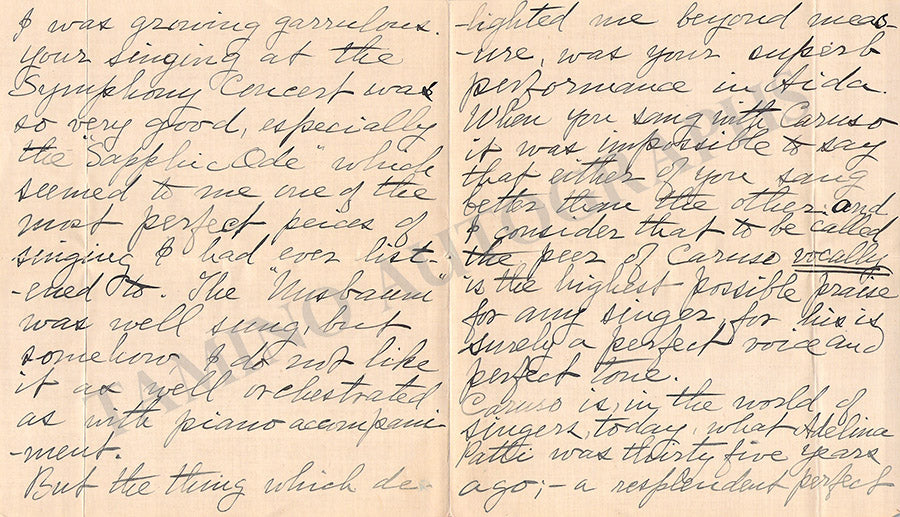 I was growing garrulous.
Your singing at the
Symphony Concert was
so very good, especially
the "Sapphic Ode" which
seemed to me one of the
most perfect peices of
singing I had ever list
-ened to. The "Nusbaum"
was well sung, but
somehow I do not like
it as well orchestrated
as with piano accompani
-ment.
But the thing which de
-lighted me beyond meas-
-ure, was your superb
performance in Aida.
When you sang with Caruso
it was impossible to say
that either of you sang
better than the other and
I consider that to be called
the peer of Caruso vocally
is the highest possible praise
for any singer, for his is
surely a perfect voice and
perfect tone.
Caruso is, in the world of
singers, today, what Adelina
Patti was thirty five years
ago; - a resplendent perfect
TAMINO AUTOGRAPHS